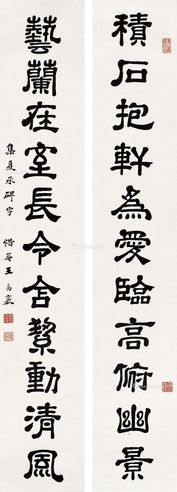 積石抱軒為愛臨高俯幽景
藝蘭在室長令含絜動清風
集夏承碑字 惜菴王禹襄